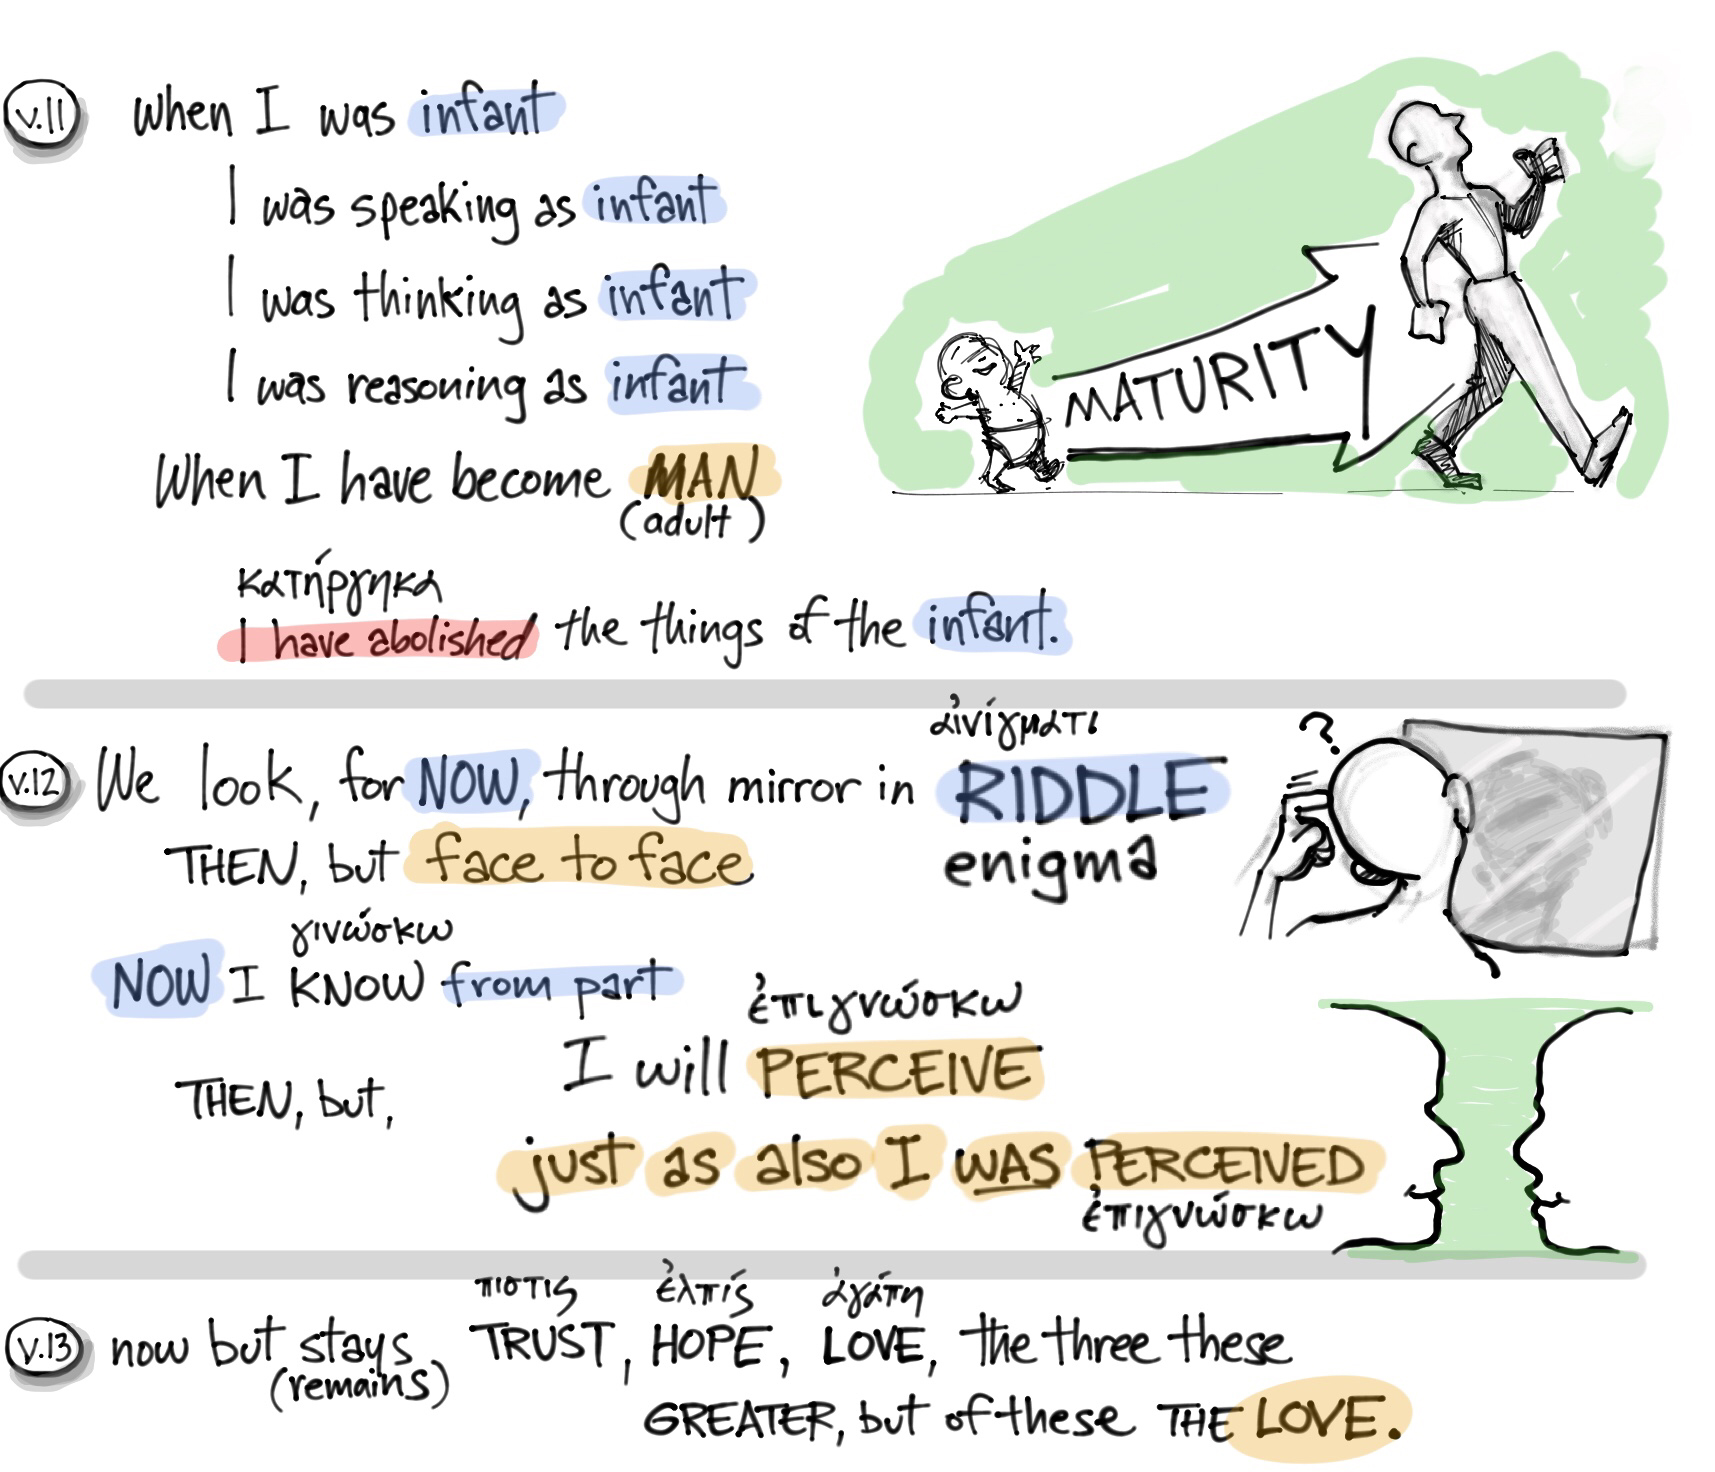 v.11 When I was infant
I was speaking as infant
I was thinking as infant
I was reasoning as infant
When I have become MAN
(adult)
κατήργηκα
I have abolished the things of the infant.
MATURITY
αἰνίγματι
v.12 We look, for NOW, through mirror in RIDDLE
enigma
THEN, but face to face
?
γινώσκω
NOW I KNOW from part
ἐπιγνώσκω
I will PERCEIVE
THEN, but,
just as also I WAS PERCEIVED
ἐπιγνώσκω
πιοτις ἐλπίς ἀγάπη
v.13 now but stays TRUST, HOPE, LOVE, the three these
(remains)
GREATER, but of these THE LOVE.